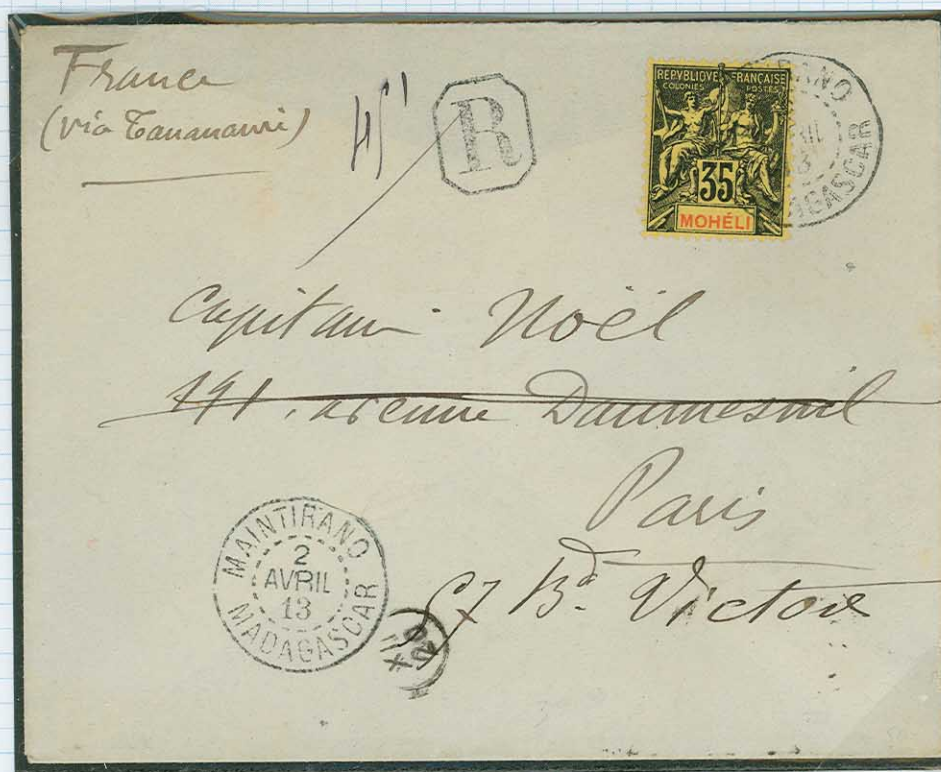 France
(via Tananarive)
R
REPVBLIQUE FRANÇAISE
COLONIES POSTES
35
MOHÉLI
Capitaine Noël
191, avenue Daumesnil
Paris
67 Bd Victor
MAINTIRANO
2
AVRIL
13
MADAGASCAR